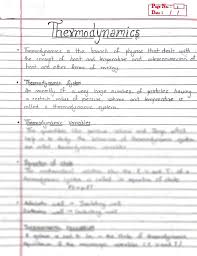 Page No: 1
Date: / /
Thermodynamics
• Thermodynamics is the branch of physics that deals with
the concept of heat and temperature and interconversion of
heat and other forms of energy.
• Thermodynamic System
An assembly of a very large number of particles having
a certain value of pressure volume and temperature is
called a thermodynamic system.
• Thermodynamic Variables
The quantities like pressure volume and temp. which
help us to study the behaviour of thermodynamic system
are called
• Equation of state
The mathematical relation
dynamic system is called its equation of state
• Adiabatic wall = Insulating wall
wall = Conducting wall
• Thermodynamic Equilibrium
A system is said to be in the state of thermodynamic
equilibrium if the macroscopic variables